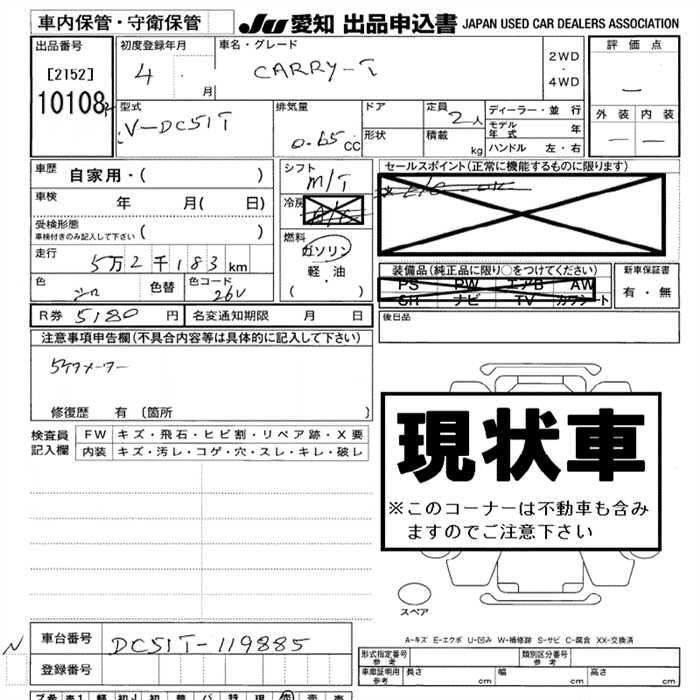 車内保管・守衛保管
JU 愛知 出品申込書 JAPAN USED CAR DEALERS ASSOCIATION
出品番号
[2152]
10108
初度登録年月
4 . 月
車名・グレード
CARRY-T
2WD
・
4WD
評価点
―
外装 内装
― ―
型式
V-DC51T
排気量
0.65 CC
ドア
形状
定員 2 人
積載 kg
ディーラー・並行
モデル年式 年
ハンドル 左・右
車歴 自家用・( )
車検 年 月( 日)
受検形態
車検付きのみ記入して下さい ( )
走行
5万2千183 km
色 シロ 色替 色コード 26U
シフト
M/T
冷房
A/C
燃料
ガソリン
軽・油
( ・ )
セールスポイント(正常に機能するものに限ります)
装備品(純正品に限り○をつけてください)
PS PW エアB AW
SR ナビ TV カワシート
新車保証書
有・無
R券 5180 円 名変通知期限 月 日
後日品
注意事項申告欄(不具合内容等は具体的に記入して下さい)
5ケタメーター
修復歴 有 〔箇所 〕
検査員記入欄
FW キズ・飛石・ヒビ割・リペア跡・X要
内装 キズ・汚レ・コゲ・穴・スレ・キレ・破レ
現状車
※このコーナーは不動車も含み
ますのでご注意下さい
スペア
A-キズ E-エクボ U-凹み W-補修跡 S-サビ C-腐食 XX-交換済
N
車台番号 DC51T-119885
登録番号
形式指定番号 参考 類別区分番号 参考
車庫証明用 参考 長さ cm 幅 cm 高さ cm